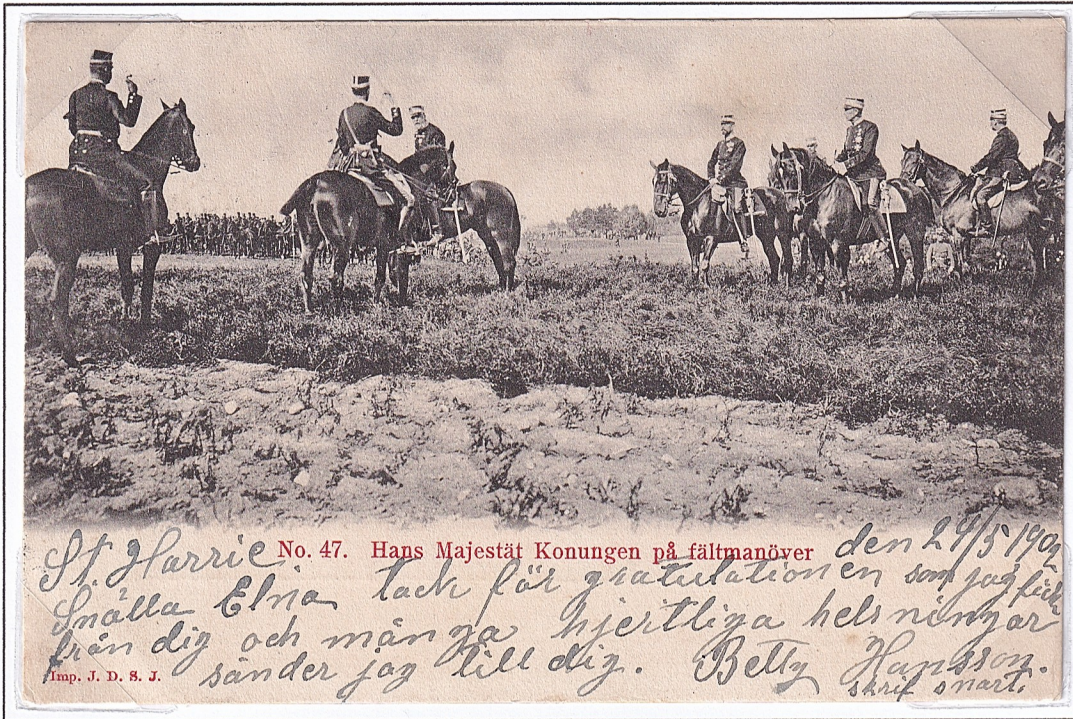 St Harrie No. 47. Hans Majestät Konungen på fältmanöver den 24/5 1902
Snälla Elna tack för gratulationen som jag fick
från dig och många hjertliga helsningar
sänder jag till dig. Betty Hansson.
Imp. J. D. S. J. skrif snart.